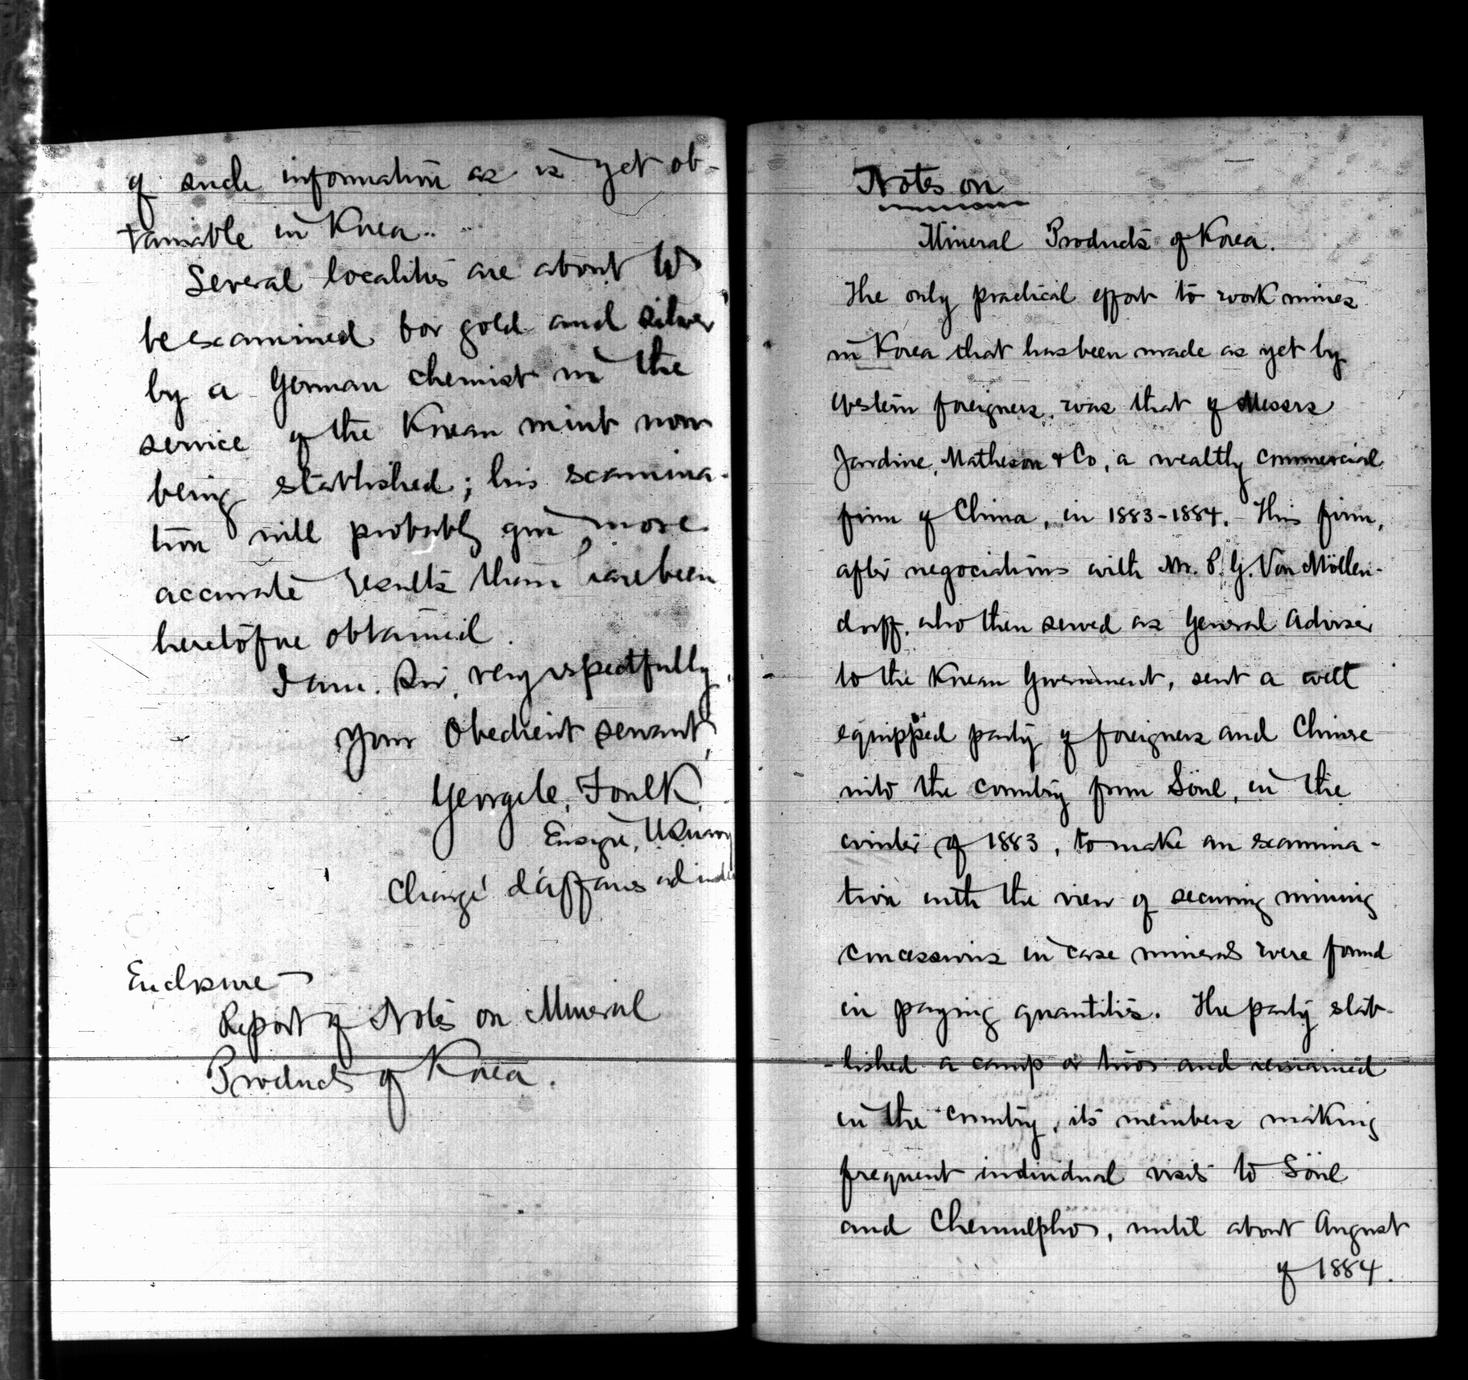 of such information as is yet ob-
tainable in Korea.
Several localities are about to
be examined for gold and silver
by a German chemist in the
service of the Korean mint now
being established; his examina-
tion will probably give more
accurate results than have been
heretofore obtained.
I am, Sir, very respectfully,
Your Obedient servant,
George C. Foulk,
Ensign, U.S. Navy
Chargé d'affaires ad inte
Enclosure
Report of Notes on Mineral
Products of Korea.
Notes on
Mineral Products of Korea.
The only practical effort to work mines
in Korea that has been made as yet by
Western foreigners, was that of Messrs
Jardine, Matheson & Co, a wealthy commercial
firm of China, in 1883-1884. This firm,
after negociations with Mr. P. G. Von Möllen-
dorff, who then served as General Adviser
to the Korean Government, sent a well
equipped party of foreigners and Chinese
into the country from Söul, in the
winter of 1883, to make an examina-
tion with the view of securing mining
concessions in case minerals were found
in paying quantities. The party estab-
lished a camp or two and remained
in the country, its members making
frequent individual visits to Söul
and Chemulpho, until about August
of 1884.